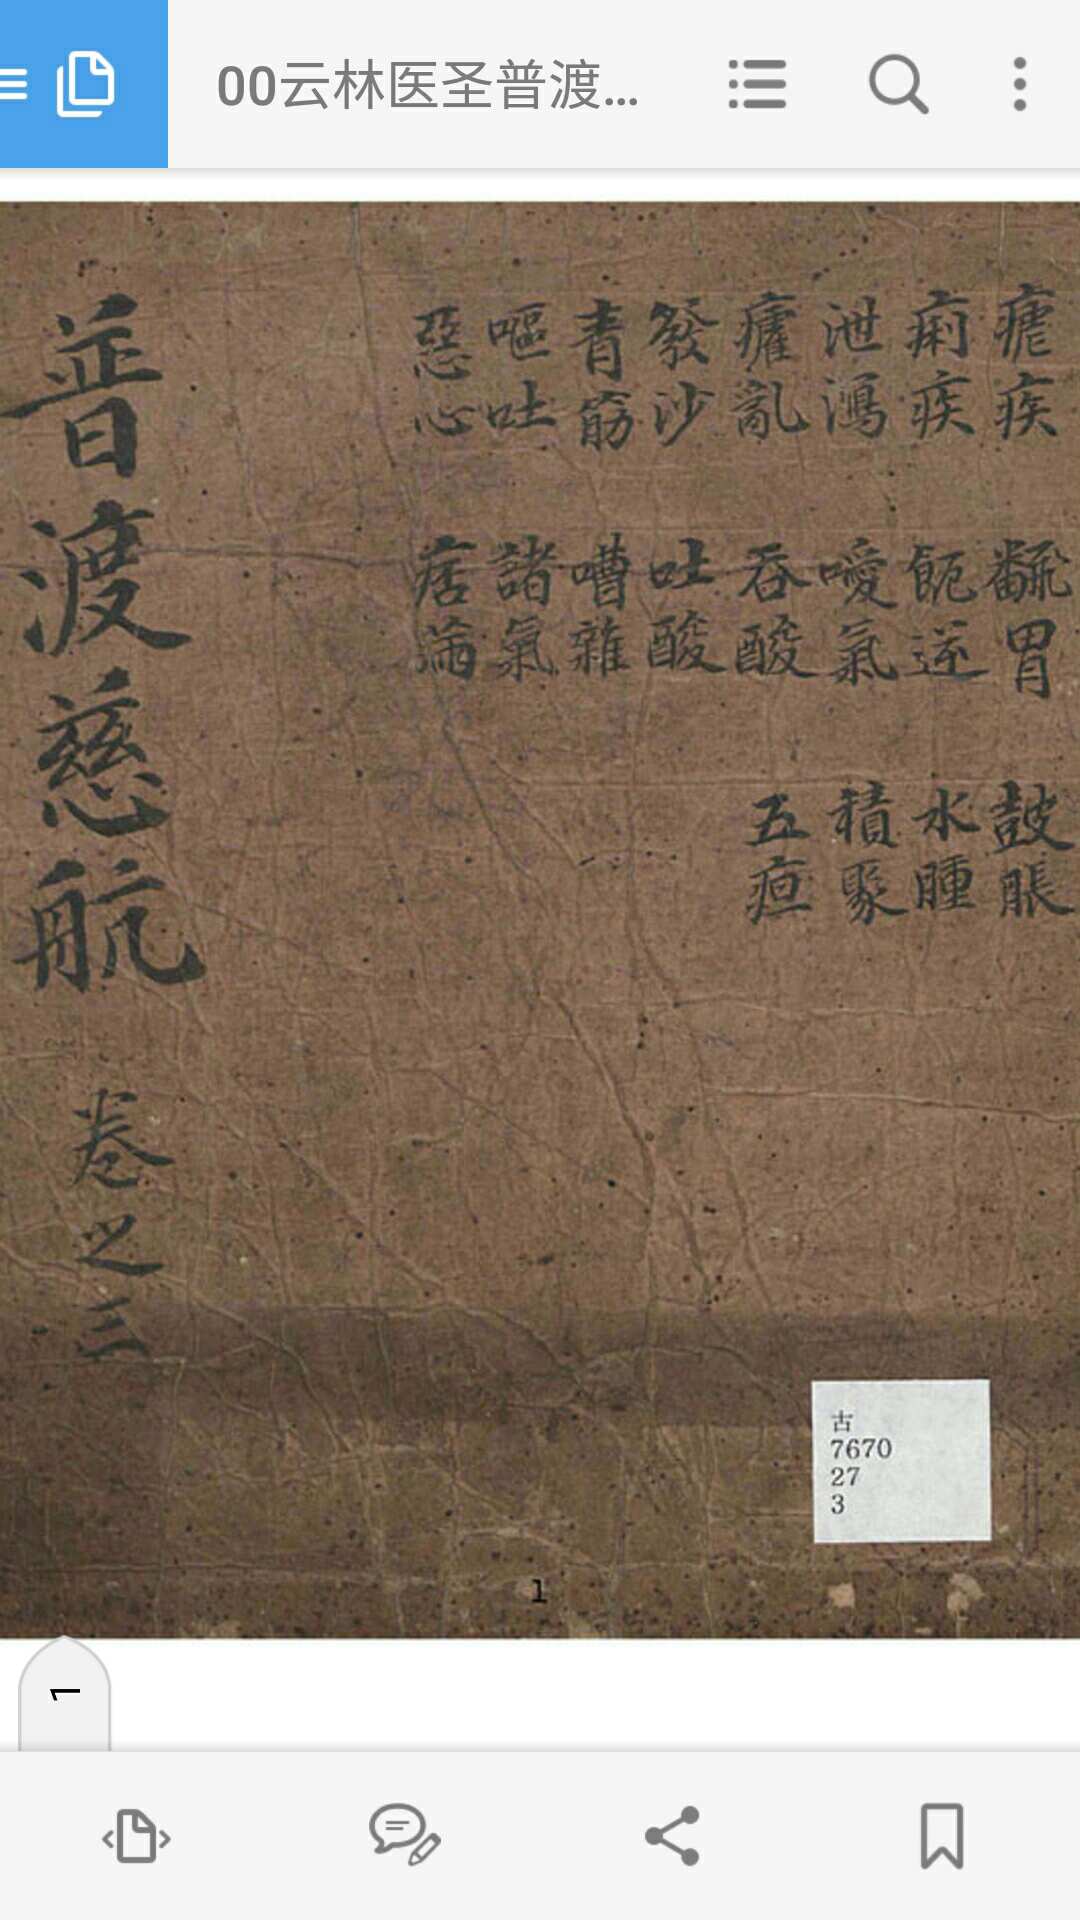 00云林医圣普渡...
瘧疾
痢疾
泄瀉
癨亂
發沙
青筋
嘔吐
惡心
翻胃
逆
噯氣
吞酸
吐酸
嘈雜
諸氣
痞滿
鼓脹
水腫
積聚
五疸
普渡慈航 卷之三
古
7670
27
3
1
1